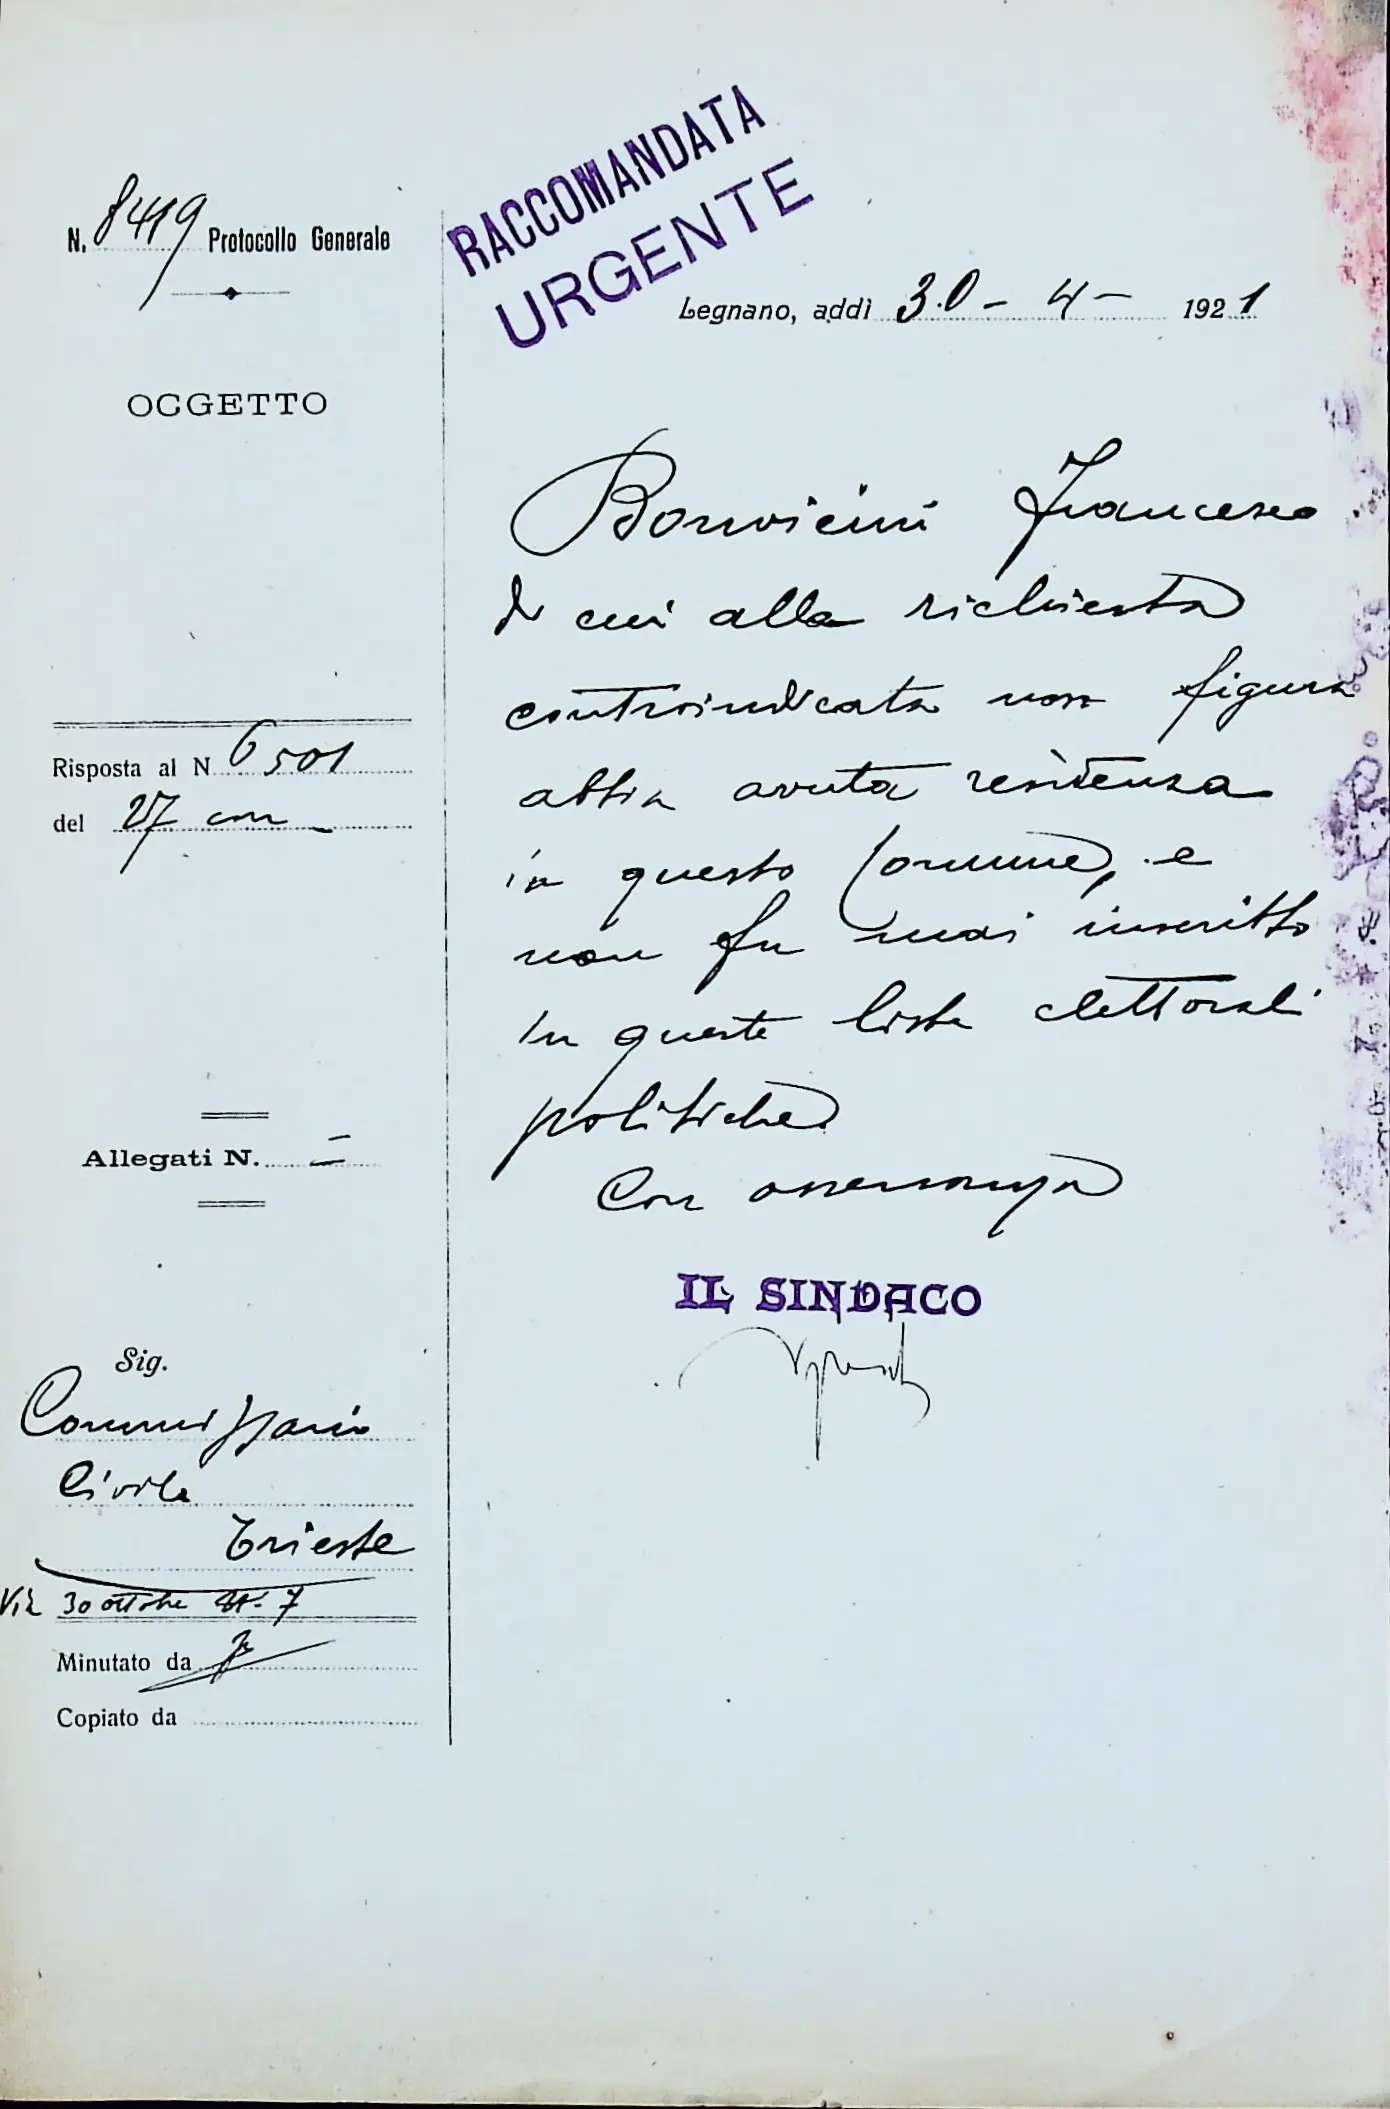 RACCOMANDATA
URGENTE
N. 8419 Protocollo Generale
Legnano, addì 30 - 4 - 1921
OGGETTO
Bonvicini Francesco
di cui alla richiesta
controindicata non figura
abbia avuta residenza
in questo Comune, e
non fu mai inscritto
in queste liste elettorali
politiche
Con osservanza
IL SINDACO
Risposta al N. 6501
del 27 corr
Allegati N. =
Sig.
Commissario
Civile
Trieste
Via 30 ottobre N. 7
Minutato da
Copiato da